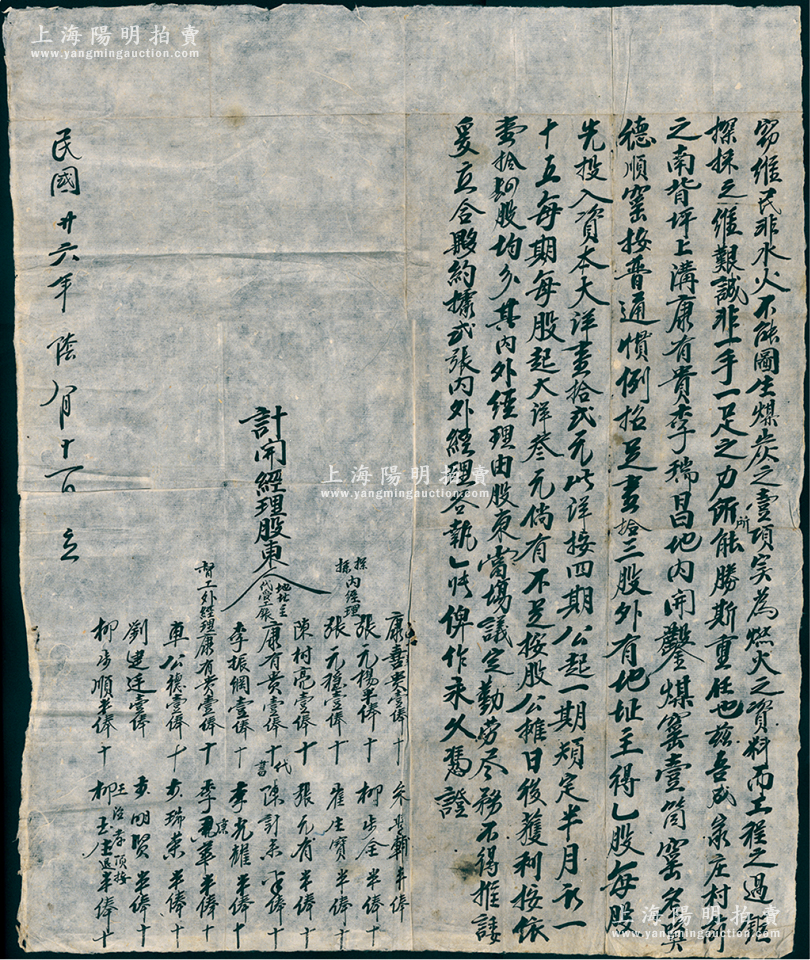 上海陽明拍賣
www.yangmingauction.com
上海陽明拍賣
www.yangmingauction.com
上海陽明拍賣
www.yangmingauction.com
上海陽明拍賣
www.yangmingauction.com
窃維民非水火不能圖生煤炭之壹項实為燃火之資料而工程之過鉅
探採之維艱誠非一手一足之力所能勝斯重任也兹吾
之南背坪上溝康有貴李瑞昌地内開鑿煤窑壹筒窑名
德順窑按普通慣例招足壹拾三股外有地址主得乙股每股
先投入資本大洋壹拾弍元此洋按四期公起一期規定半月初一
十五每期每股起大洋叁元倘有不足按股公攤日後獲利按依
壹拾四股均分其内外經理由股東當場議定勤勞尽務不得推諉
爰立合夥約據弍張内外經理各執乙帋俾作永久憑證
計開經理股東人
採内經理
康喜貴壹俸十
張元楊半俸十
張元穩壹俸十
陳村亮壹俸十
地址主
康有貴壹俸十
李振網壹俸十
督工外經理康有貴壹俸十
車公德壹俸十
劉建廷壹俸
柳步順半俸十
半俸
柳步金半俸十
崔生寶半俸十
張元有半俸十
代書
陳計 半俸十
李光雄半俸十
李 半俸十
瑞荣半俸十
明賢半俸十
柳玉 半俸十
民國廿六年陰八月十 日立